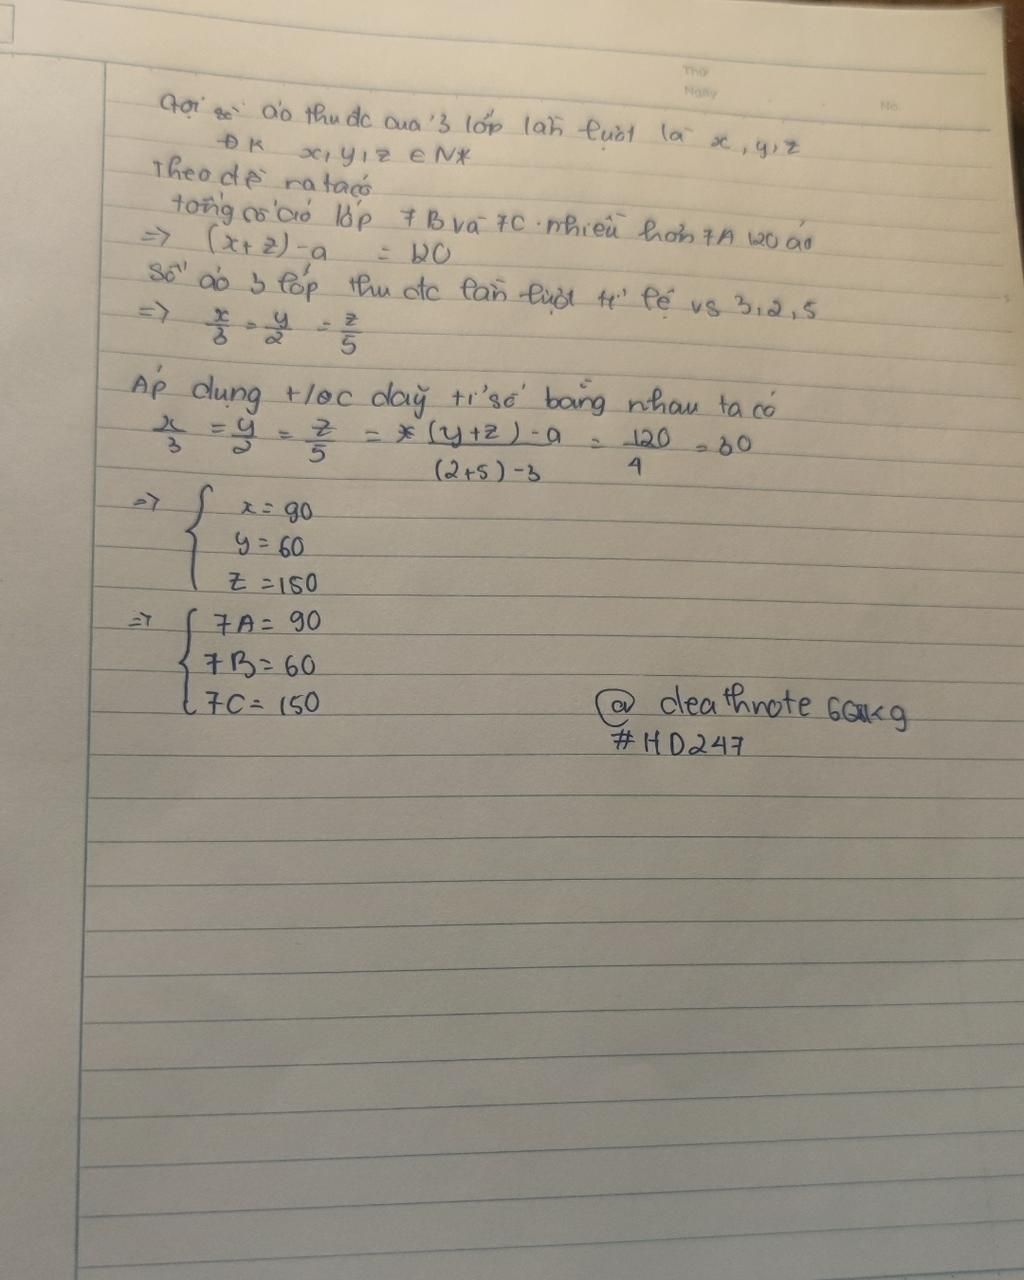 Thứ
Ngày
No.
Gọi số áo thu đc của 3 lớp lần lượt là x, y, z
ĐK x, y, z ∈ N*
Theo đề ra ta có
tổng số áo lớp 7B và 7C nhiều hơn 7A 120 áo
=> (x+z)-a = 120
Số áo 3 lớp thu đc lần lượt tỉ lệ vs 3, 2, 5
=> x/3 = y/2 = z/5
Áp dụng t/c dãy tỉ số bằng nhau ta có
x/3 = y/2 = z/5 = (y+z)-a / (2+5)-3 = 120/4 = 30
=> { x = 90
y = 60
z = 150
=> { 7A = 90
7B = 60
7C = 150
@ deathnote
#HD247